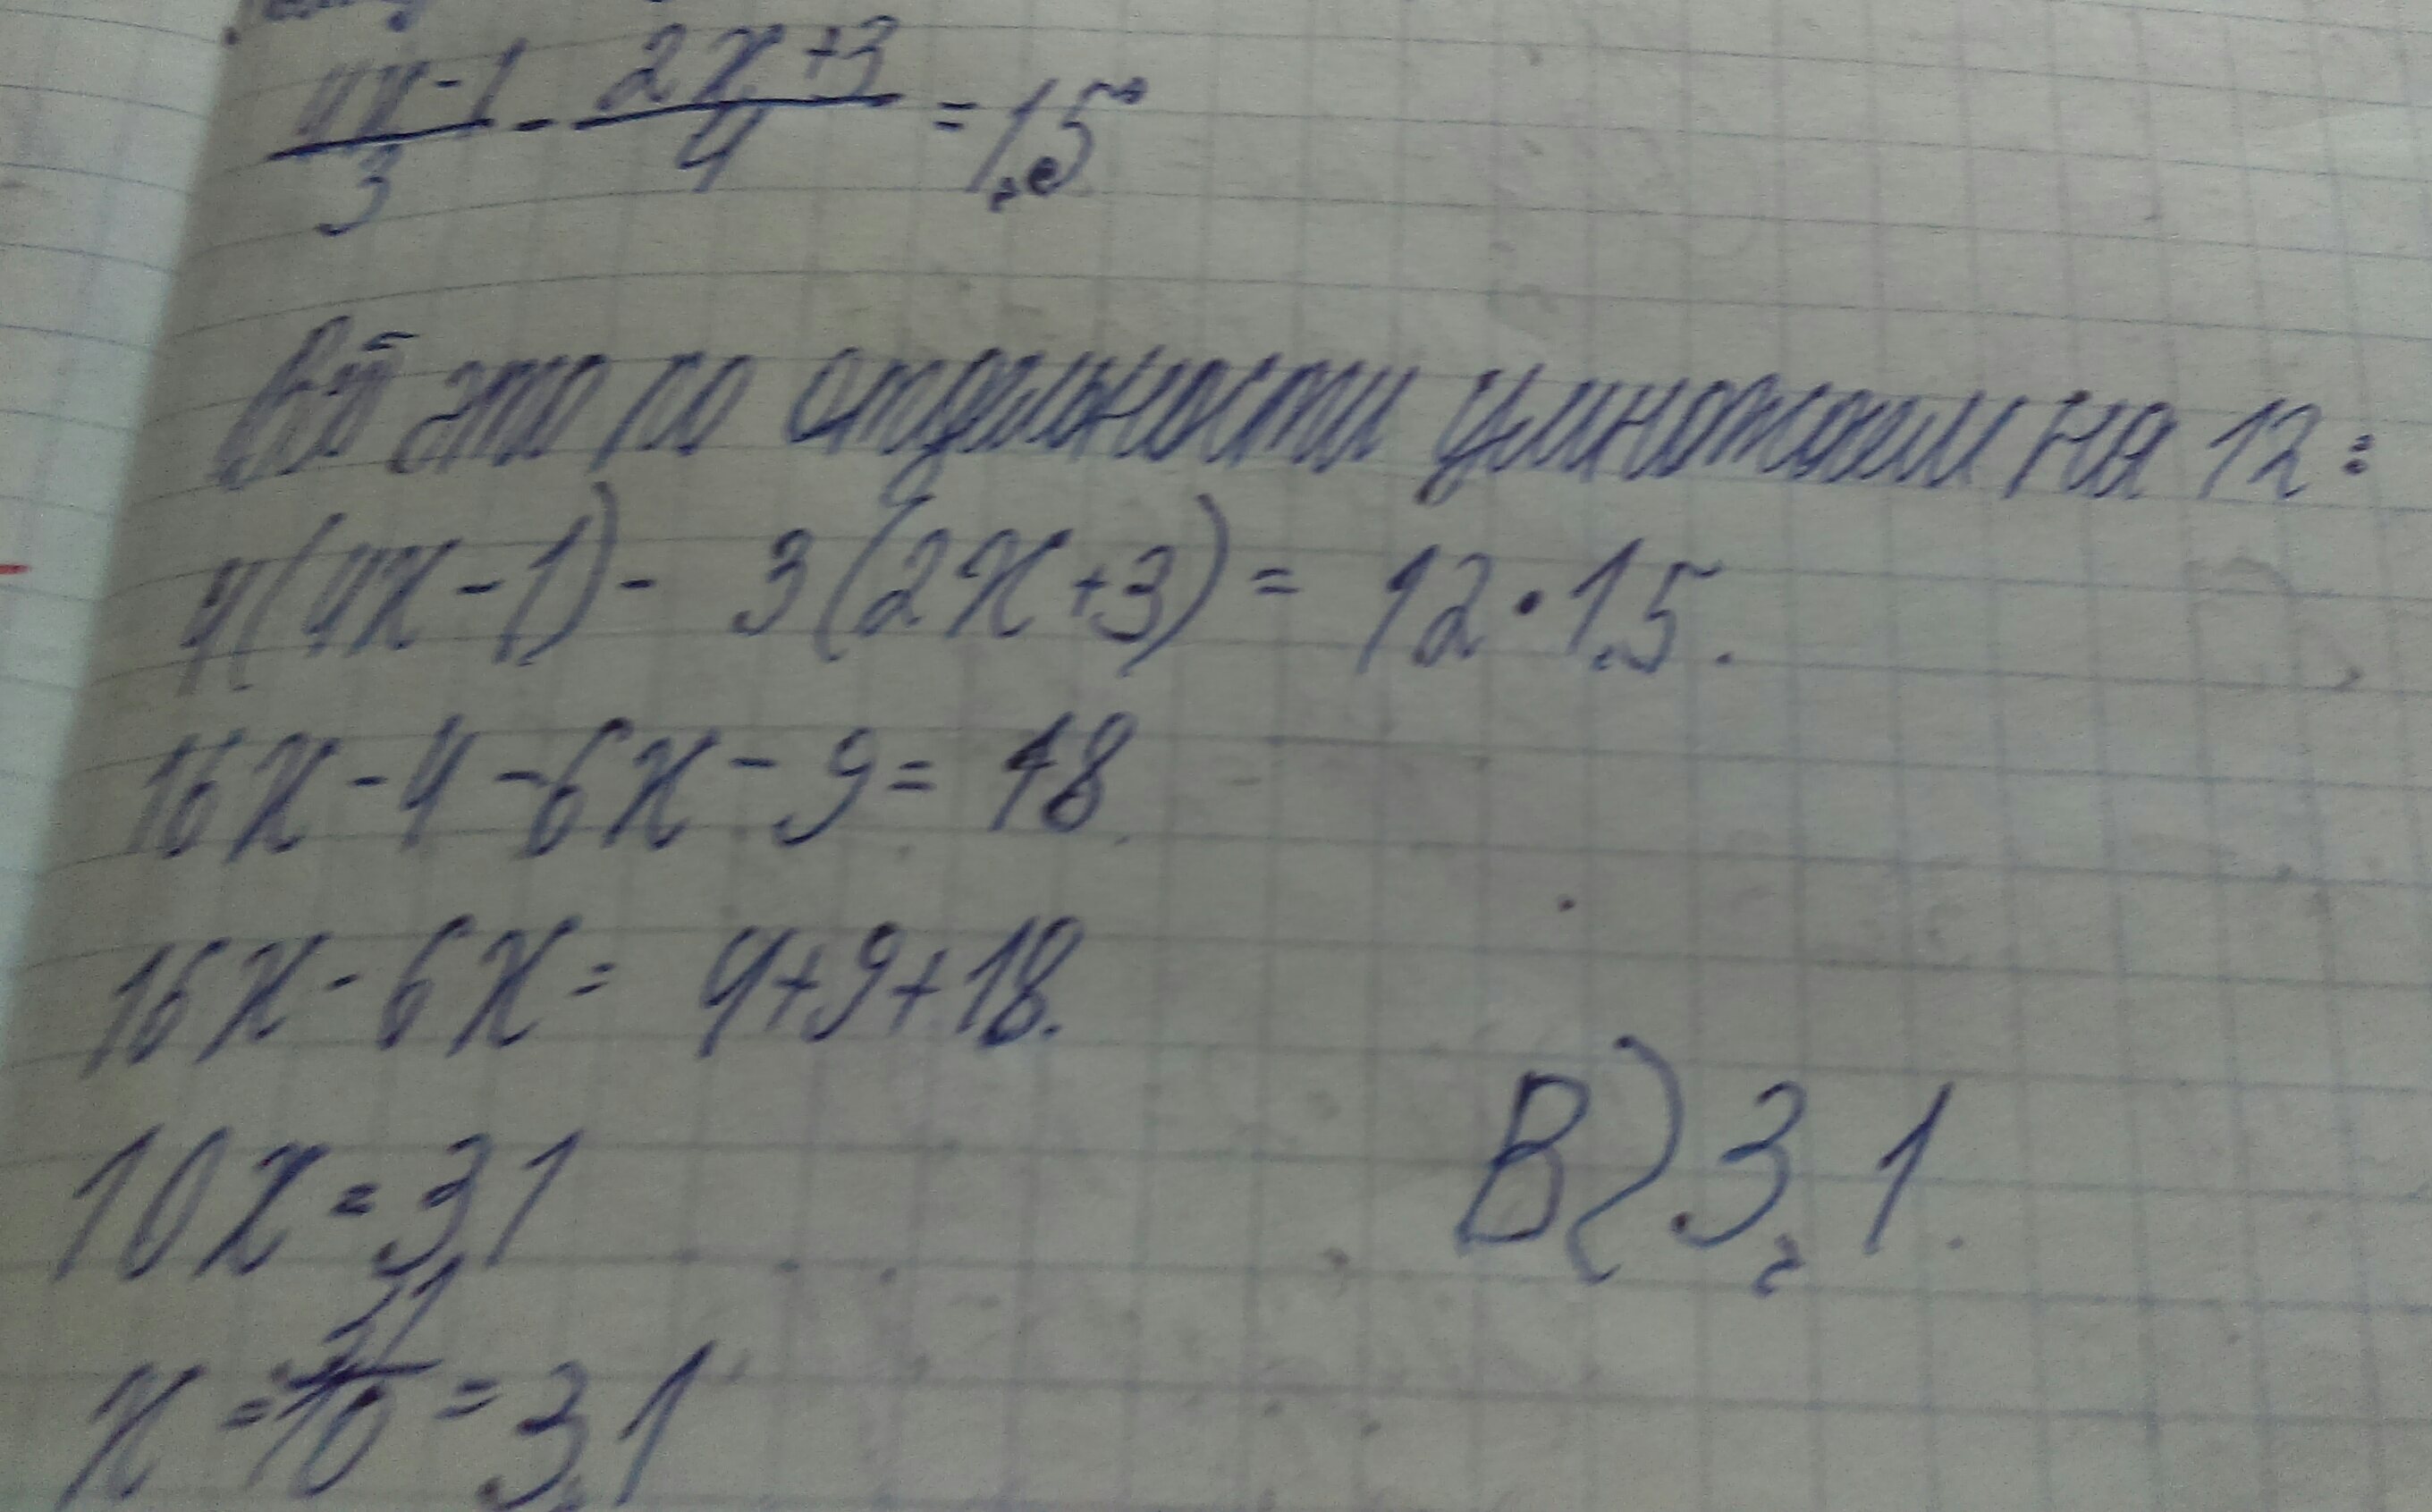 (4x-1)/3 - (2x+3)/4 = 1,5
Всё это по отдельности умножаем на 12:
4(4x-1)- 3(2x+3) = 12·1,5.
16x-4-6x-9= 18
16x-6x= 4+9+18.
10x=31
B) 3,1.
x=31/10=3,1